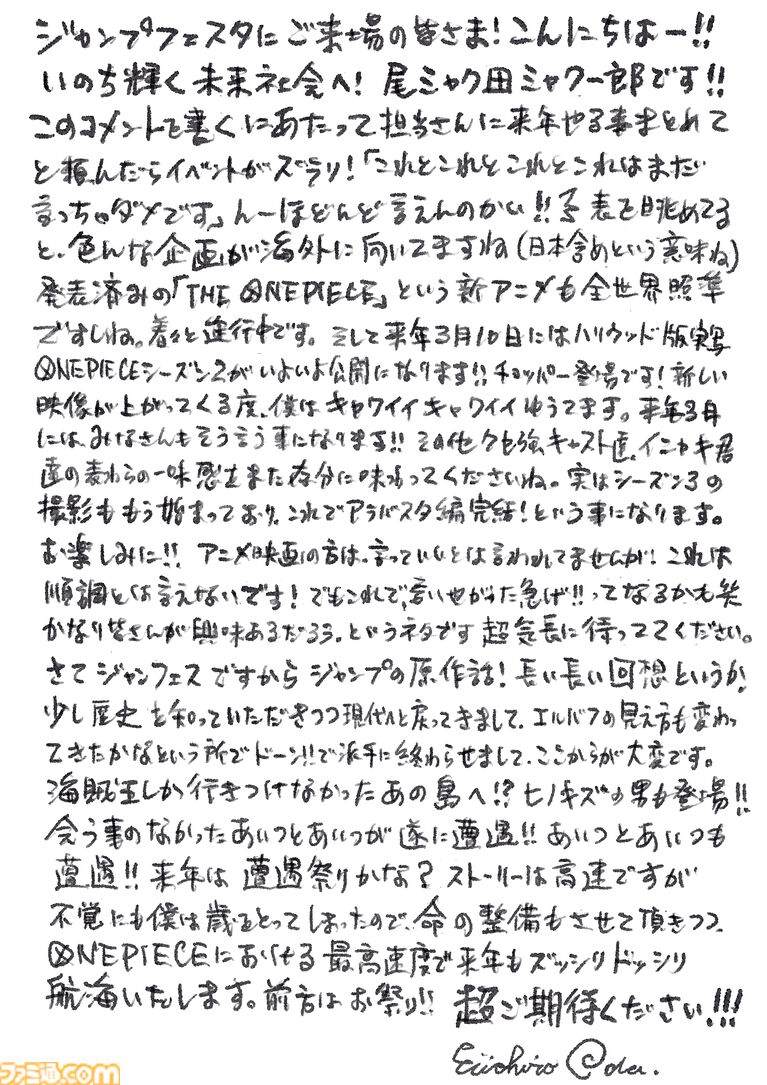 ジャンプフェスタにご来場の皆さま！こんにちはー!!
いのち輝く未来社会へ！尾ミャク田ミャク一郎です!!
このコメントを書くにあたって担当さんに来年やる事まとめて
と頼んだらイベントがズラリ！「これとこれとこれとこれはまだ
言っちゃダメです」んーほとんど言えんのかい!!予表を眺めてる
と、色んな企画が海外に向いてますね(日本含めという意味ね)
発表済みの「THE ONE PIECE」という新アニメも全世界照準
ですしね。着々と進行中です。そして来年3月10日にはハリウッド版実写
ONE PIECEシーズン2がいよいよ公開になります!!チョッパー登場です！新しい
映像が上がってくる度、僕はキャワイイキャワイイゆうてます。来年3月
には、みなさんもそう言う事になります!!その他クセ強キャスト達、イニャキ君
達の麦わらの一味感もまた存分に味わってくださいね。実はシーズン3の
撮影ももう始まっており、これでアラバスタ編完結！という事になります。
お楽しみに!!アニメ映画の方は、言っていいとは言われてませんが！これは
順調とは言えないです！でもこれで、言いやがった急げ!!ってなるかも笑
かなり皆さんが興味あるだろう、というネタです超気長に待っててください。
さてジャンフェスですからジャンプの原作話！長い長い回想というか、
少し歴史を知っていただきつつ現代へと戻ってきまして、エルバフの見え方も変わっ
てきたかなという所でドーン!!で派手に終わらせまして、ここからが大変です。
海賊王しか行きつけなかったあの島へ!?ヒノキズの男も登場!!
会う事のなかったあいつとあいつが遂に遭遇!!あいつとあいつも
遭遇!!来年は遭遇祭りかな？ストーリーは高速ですが
不覚にも僕は歳をとってしまったので、命の整備もさせて頂きつつ、
ONE PIECEにおける最高速度で来年もズッシリドッシリ
航海いたします。前方はお祭り!!超ご期待ください!!!
Eiichiro Oda.
ファミ通.com